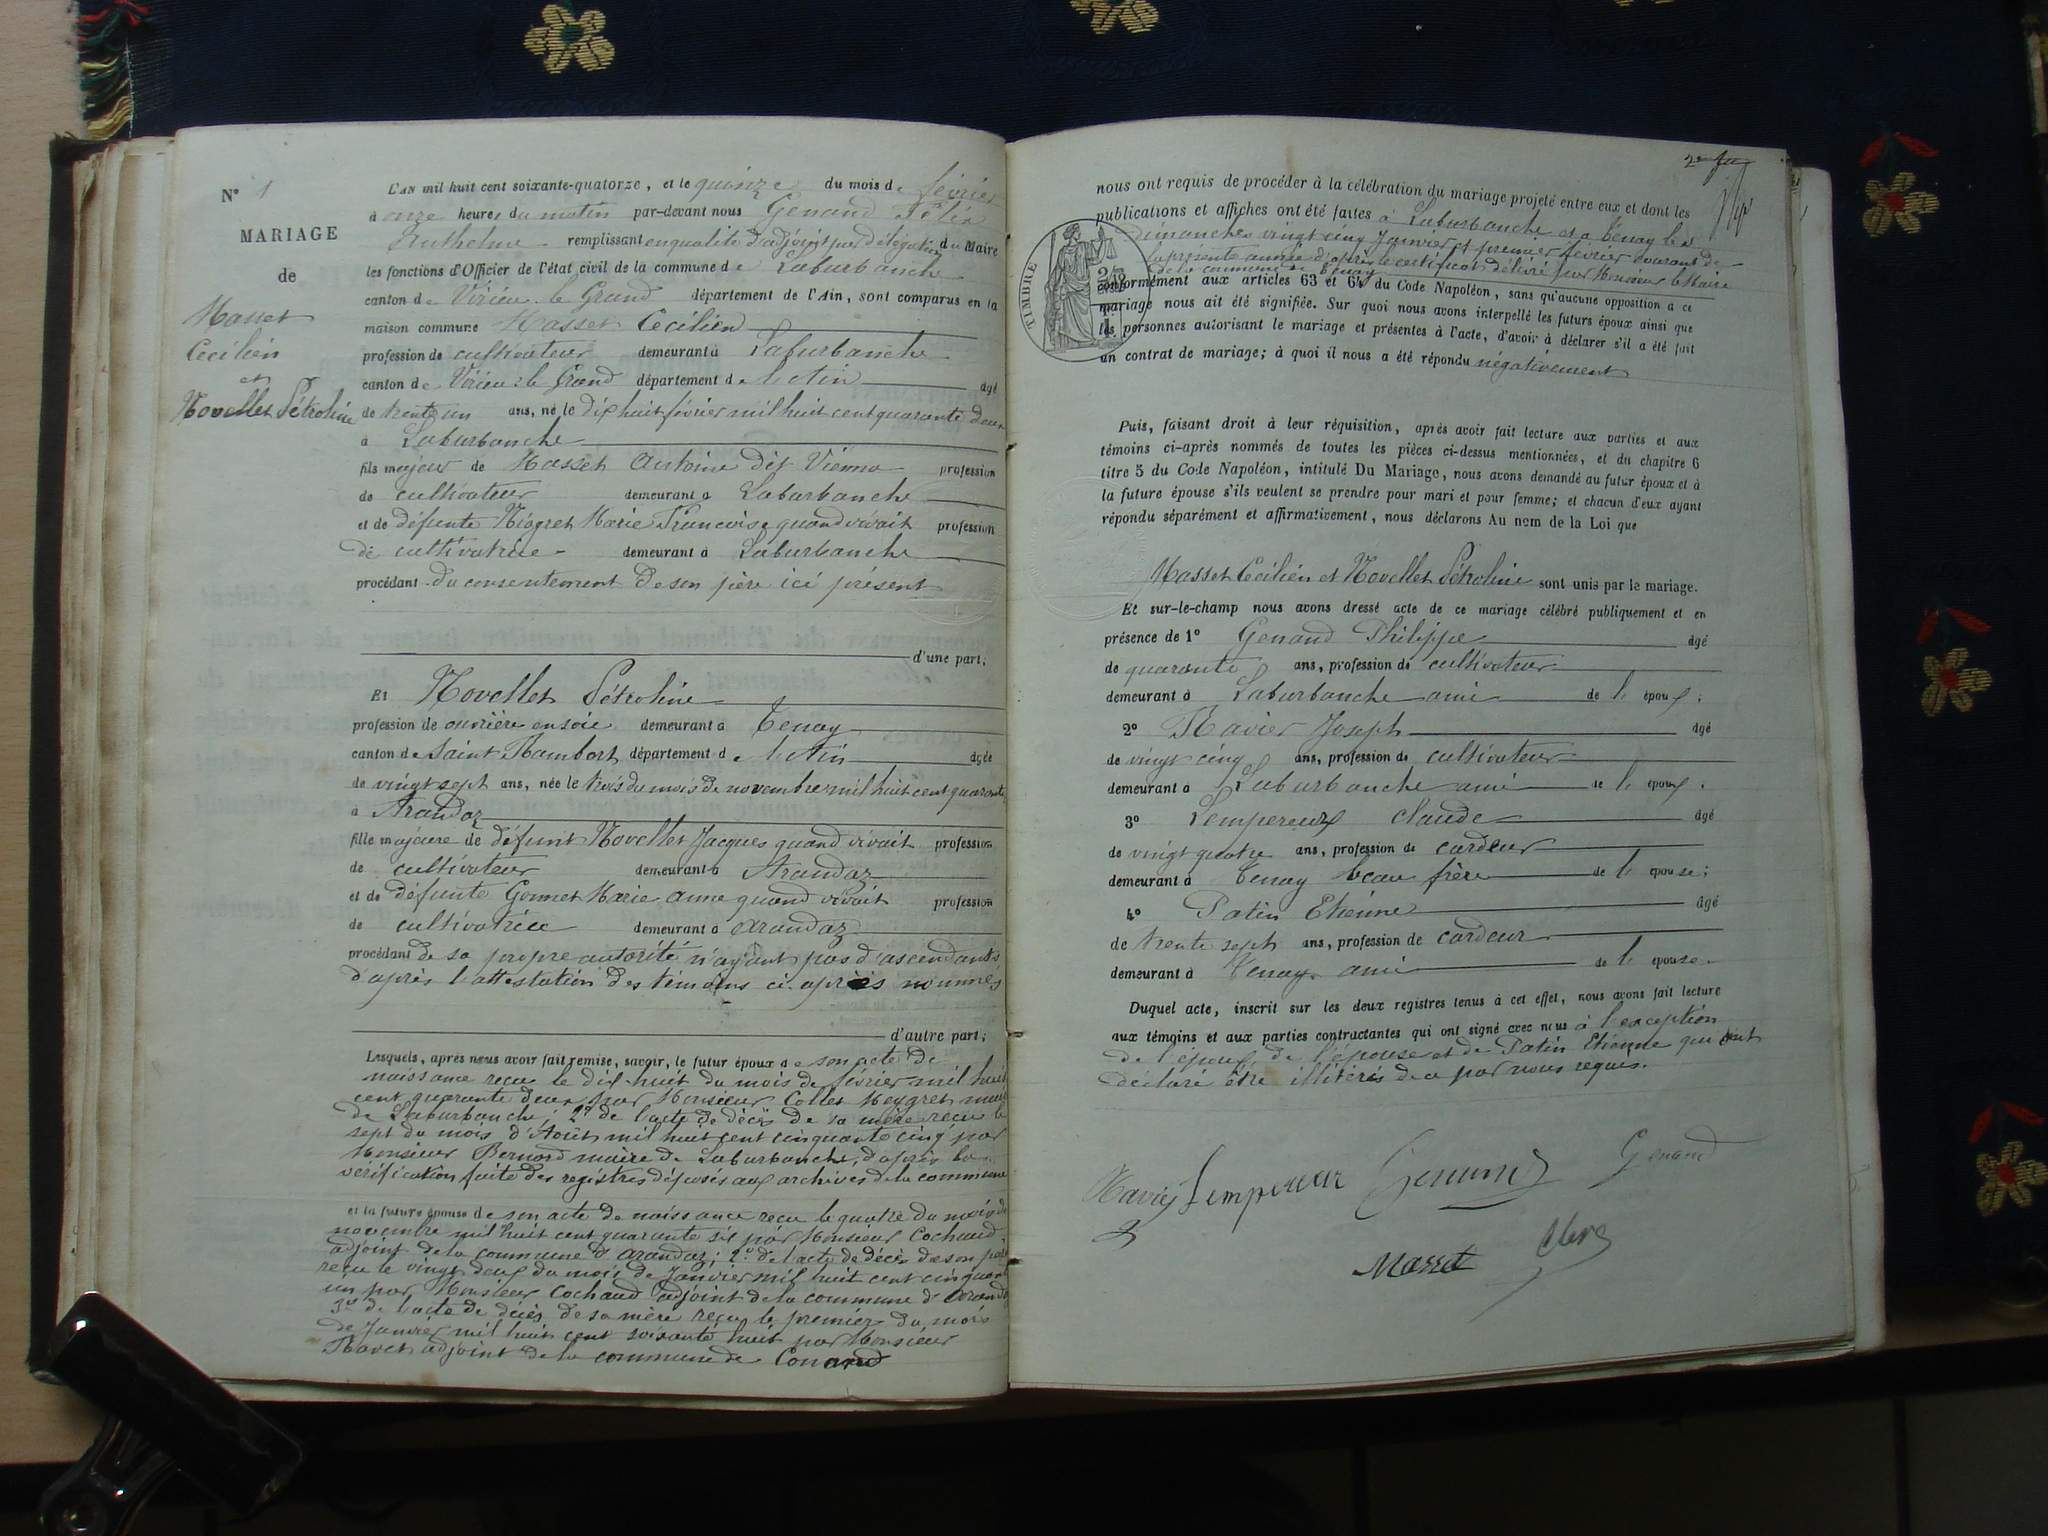 N° 1
MARIAGE
de
Masset
Cecilien
et
Novellet Pétroline
L'AN mil huit cent soixante-quatorze, et le quinze du mois de février
à onze heures du matin par-devant nous Genand Félix
Anthelme remplissant en qualité d'adjoint par délégation du Maire
les fonctions d'Officier de l'état civil de la commune de Laburbanche
canton de Virieu le Grand département de l'Ain, sont comparus en la
maison commune Masset Cecilien
profession de cultivateur demeurant à Laburbanche
canton de Virieu le Grand département de l'Ain âgé
de trente un ans, né le dix huit février mil huit cent quarante deux
à Laburbanche
fils majeur de Masset Antoine dit Vienno profession
de cultivateur demeurant à Laburbanche
et de défunte Niogret Marie Francoise quand vivait profession
de cultivatrice demeurant à Laburbanche
procédant du consentement de son père ici présent
d'une part;
Et Novellet Pétroline
profession de ouvrière en soie demeurant à Tenay
canton de Saint Rambert département de l'Ain âgée
de vingt sept ans, née le trois du mois de novembre mil huit cent quarante
à Arandaz
fille majeure de défunt Novellet Jacques quand vivait profession
de cultivateur demeurant à Arandaz
et de défunte Gonnet Marie anne quand vivait profession
de cultivatrice demeurant à arandaz
procédant de sa propre autorité n'ayant pas d'ascendants
d'après l'attestation des témoins ci-après nommés
d'autre part;
Lesquels, après nous avoir fait remise, savoir, le futur époux de son acte de
naissance reçu le dix-huit du mois de février mil huit
cent quarante deux par Monsieur Collet Meygret maire
de Laburbanche; 2° de l'acte de décès de sa mère reçu le
sept du mois d'Août mil huit cent cinquante cinq par
Monsieur Bernard maire de Laburbanche, d'après la
vérification faite des registres déposés aux archives de la commune
et la future épouse de son acte de naissance reçu le quatre du mois de
novembre mil huit cent quarante six par Monsieur Cochaud
adjoint de la commune d'arandaz; 2° de l'acte de décès de son père
reçu le vingt deux du mois de Janvier mil huit cent cinquante
un par Monsieur Cochaud adjoint de la commune d'arandaz
3° de l'acte de décès de sa mère reçu le premier du mois
de Janvier mil huit cent soixante huit par Monsieur
Ravet adjoint de la commune de Conand
nous ont requis de procéder à la célébration du mariage projeté entre eux et dont les
publications et affiches ont été faites à Laburbanche et à Tenay les
dimanches vingt cinq Janvier et premier février courant de
la présente année d'après le certificat délivré par Monsieur le Maire
de la commune de Tenay
TIMBRE
conformément aux articles 63 et 64 du Code Napoléon, sans qu'aucune opposition à ce
mariage nous ait été signifiée. Sur quoi nous avons interpellé les futurs époux ainsi que
les personnes autorisant le mariage et présentes à l'acte, d'avoir à déclarer s'il a été fait
un contrat de mariage; à quoi il nous a été répondu négativement
Puis, faisant droit à leur réquisition, après avoir fait lecture aux parties et aux
témoins ci-après nommés de toutes les pièces ci-dessus mentionnées, et du chapitre 6
titre 5 du Code Napoléon, intitulé Du Mariage, nous avons demandé au futur époux et à
la future épouse s'ils veulent se prendre pour mari et pour femme; et chacun d'eux ayant
répondu séparément et affirmativement, nous déclarons Au nom de la Loi que
Masset Cecilien et Novellet Pétroline sont unis par le mariage.
Et sur-le-champ nous avons dressé acte de ce mariage célébré publiquement et en
présence de 1° Genand Philippe âgé
de quarante ans, profession de cultivateur
demeurant à Laburbanche ami de l'époux;
2° Ravier Joseph âgé
de vingt cinq ans, profession de cultivateur
demeurant à Laburbanche ami de l'époux.
3° Lempereur claude âgé
de vingt quatre ans, profession de cardeur
demeurant à Tenay beau frère de l'épouse;
4° Patin Etienne âgé
de trente sept ans, profession de cardeur
demeurant à Tenay ami de l'épouse.
Duquel acte, inscrit sur les deux registres tenus à cet effet, nous avons fait lecture
aux témoins et aux parties contractantes qui ont signé avec nous à l'exception
de l'époux, de l'épouse et de Patin Etienne qui ont
déclaré être illitérés de ce par nous requis.
Ravier Lempereur Genand Genand
Masset